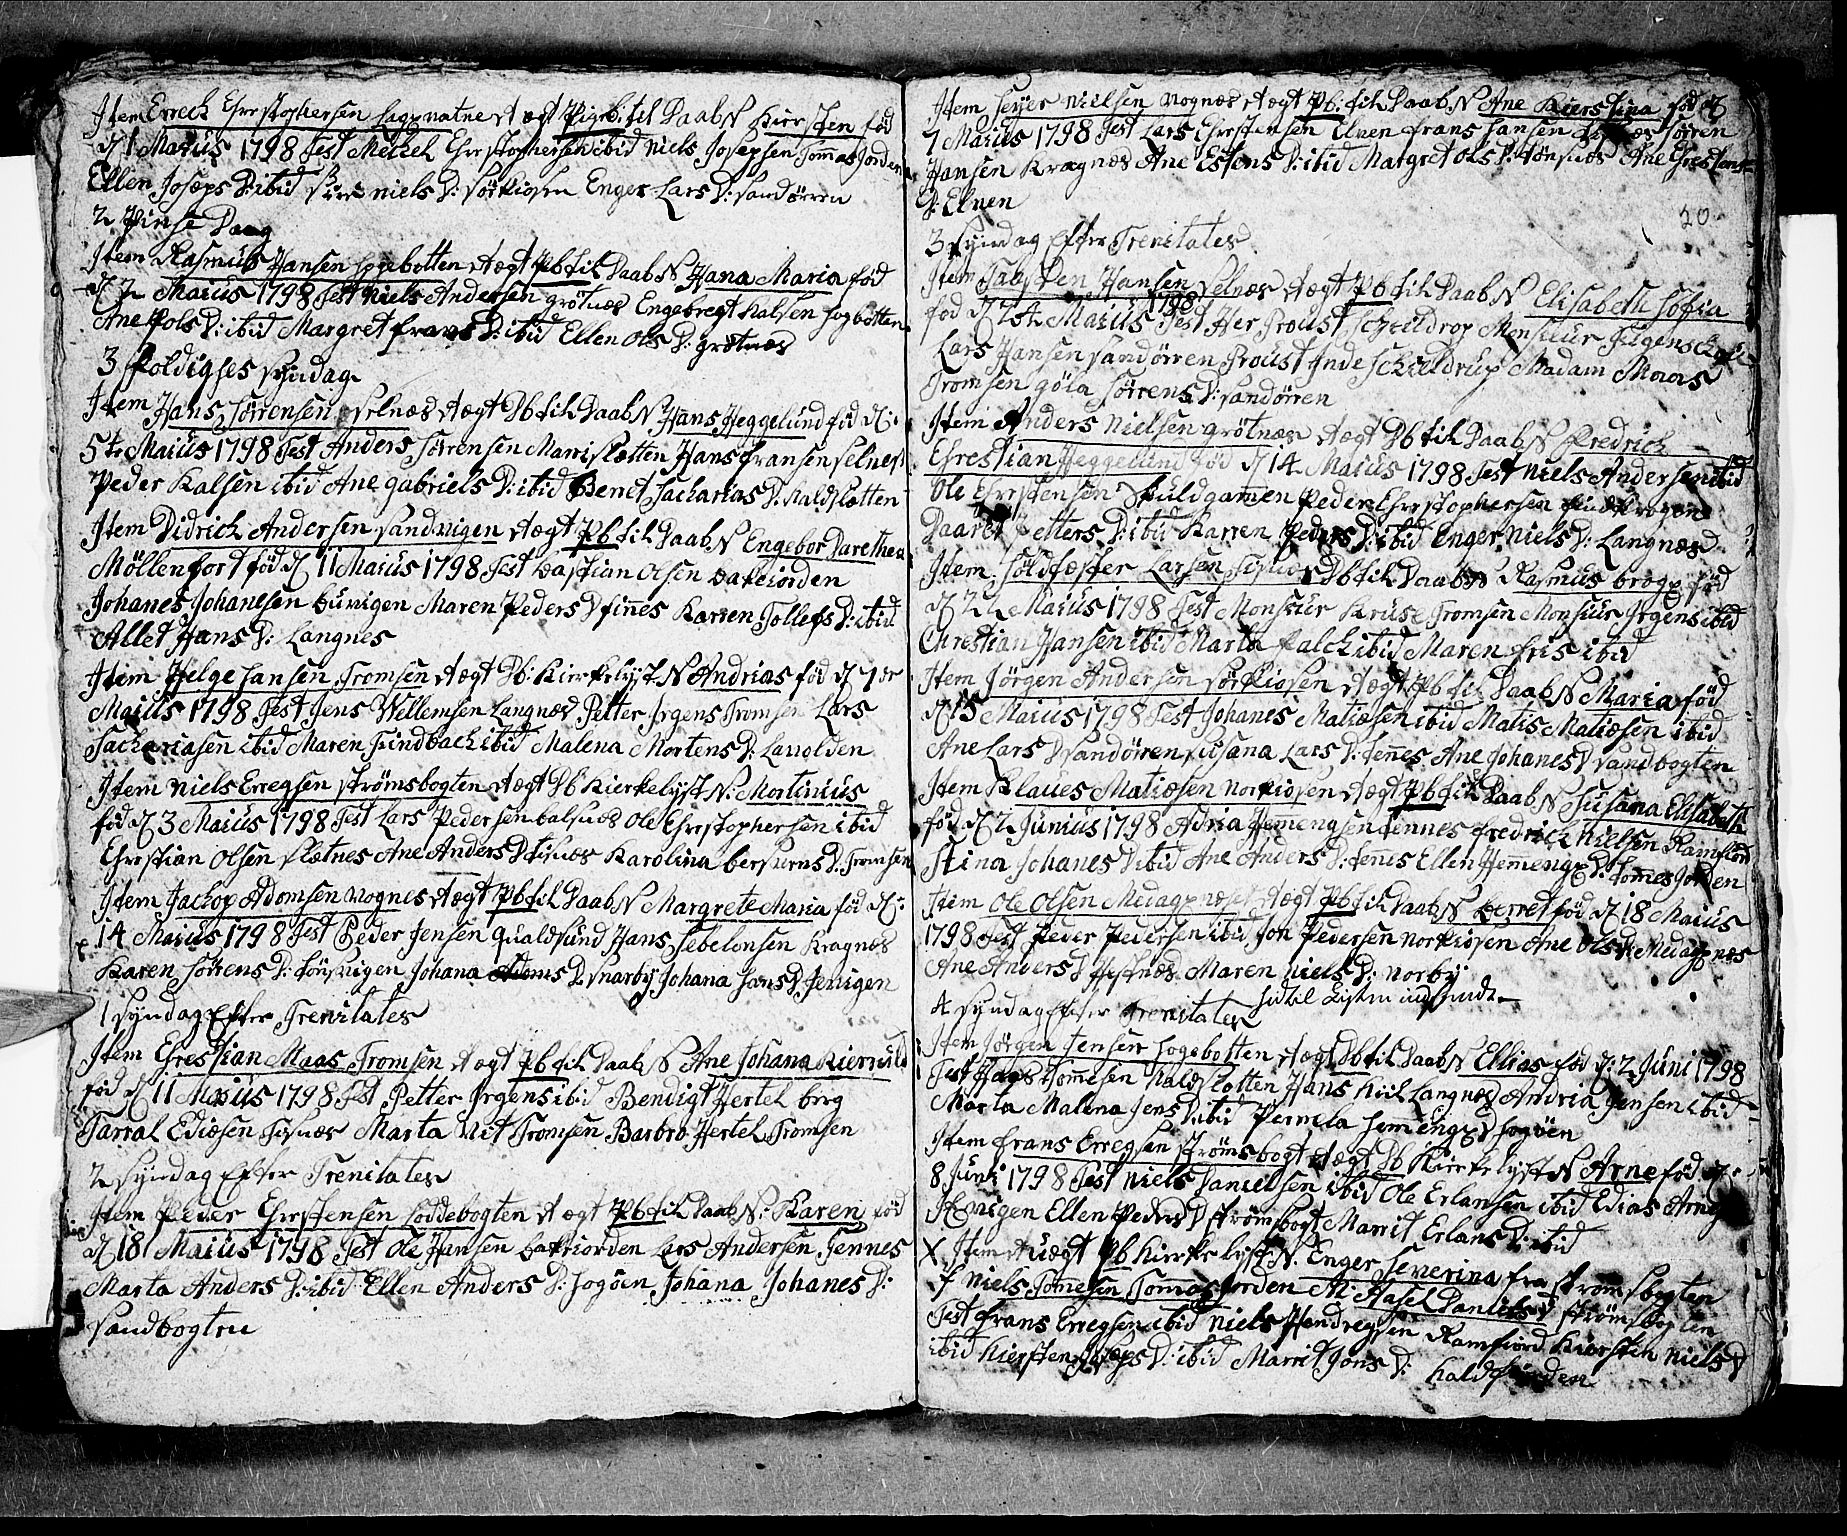 Item Erreck Chrestophersen Lagpnatne Ægt Pigeb til Daab N Kiersten fød
d 1 Maius 1798 Test Meckel Chrstophersen ibid Niels Josephsen Tommasjorden
Ellen Joseps D: ibid niels D: Sørkiosen Enger Lars D: Sandørren
2 Pinse Daag
Item Rasmus Hansen Sogebotten Ægt Pb til Daab N Hana Maria fød
d 2 Maius 1798 Test Niels Andersen grøtnæs Engebregt Kalsen Sogbotten
Ane Pols D: ibid Margret frans D: ibid Ellen Ols D: grøtnæs
3 Poldigses Syndag
Item Hans Sørrensen Selnæs Ægt Db til Daab N Hans Heggelund fød d:
5te Maius 1798 Test Anders Sørrensen Marrislætten Hans fransen Selnes
Peder Kalsen ibid Ane gabriels D: ibid Benet Sacharias D: Kaldslotten
Item Didrich Andersen Sandvigen Ægt Pb til Daab N Engebor Darethea
Möllenfort fød d 11 Maius 1798 Test Bastian Olsen Bakeiorden
Johanes Johanesen Burvigen Maren Peders D finnes Karren Tollefs D: ibid
Allet Hans D: Langnes
Item Helge Hansen Tromsen Ægt Db: Kierkelyst N Andrias fød d 7de
Maius 1798 Test Jens Wellemsen Langnæs Petter Irgens Tromsen Lars
Sachariasen ibid Maren Lindback ibid Malena Mortens D: Lanolden
Item Niels Erregsen Strømsbogten Ægt Db Kierkelyst N: Mortinius
fød d 3 Maius 1798 Test Lars Pedersen balsnos Ole Chrstophersen ibid
Chrstian Olsen Slætnes Ane Anders D tisnes Karolina bersvens D: Tromsen
Item Jackop Adomsen Vognes Ægt Pb til Daab N Margrete Maria fød d:
14 Maius 1798 Test Peder Jensen Qualdsund Hans Sebelonsen Kragnæs
Karen Sørrens D: Tönsvigen Johana Adoms D Snarby Johana Hans D Jenigen
1 Syndag Efter Trenitates
Item Chrestian Maas Tromsen Ægt Pb til Daab N Ane Johana Kierruld
fød d 11 Maius 1798 Test Petter Irgens ibid Bendigt Hertel brig
Tarral Ediæsen Tisnæs Marta Vet Tromsen Barbro Hertel Tromsen
2 Syndag Efter Trenitates
Item Peder Chrstensen Loddebogten Ægt Pb til Daab N: Karen fød
d 18 Maius 1798 Test Ole Hansen Bakeiorden Lars Andersen Tennes
Marta Anders D: ibid Ellen Anders D: Sogöen Johana Johanes D:
Sandbogten
Item Seyer Nielsen Vognæs Ægt Pb: til Daab N Ane Kierstina fød d
7 Maius 1798 Test Lars Chrstensen Elven frans Hansen Sørren
Hansen Kragnæs Ane Estens D: ibid Margret Ols D: Tönsnæs Ane Chrestens
D: Elven
20
3 Syndag Efter Trenitates
Item Hansen Selnæs Ægt Pb til Daab N Elisabeth Sofia
fød d Maius 1798 Test Her Proust Scheldrop Monsiuur Jügens
Lars Hansen Sandørren Proust Inde Scheldrup Madam Moors
Tromsen göla Sørrens D: Sandørren
Item Anders Nielsen grötnæs Ægt Db til Daab N Fredrich
Chrestian Heggelund fød d 14 Maius 1798 Test Niels Andersen ibid
Ole Chrstensen Skuldgamen Peder Chrstophersen findkrogen
Daaret Petters D: ibid Karren Peders D: ibid Enger Niels D: Langnæs
Item Søldfæster Larsen Tisnæs Db til Daab N Rasmus brogp fød
d 22 Maius 1798 Test Monsiur Kruse Tromsen Monsiur Irgens ibid
Chrestian Hansen ibid Marta falck ibid Maren fris ibid
Item Jörgen Andersen Sörkiosen Ægt Pb til Daab N Maria fød
d 15 Maius 1798 Test Johanes Matiæsen ibid Matis Matiæsen ibid
Ane Lars D Sandörren Susana Lars D: Tennes Ane Johanes D Sandbogten
Item Klaues Matiæsen Norkiosen Ægt Pb til Daab N Susana Elisabeth
fød d 2 Junius 1798 Adria Hemengsen Tennes fredrich Nielsen Ramfiord
Stina Johanes D: ibid Ane Anders D: Tennes Ellen Hemengx D: Tomesjorden
Item Ole Olsen Medagpnæset Ægt Pb til Daab N Berret fød d 18 Maius
1798 Test Peder Pedersen ibid Jon Pedersen Norkiosen Ane Ols D: Medagpnæs
Ane Anders D Hestnæs Maren Niels D: Norby
4 Syndag Efter Trenitates hidtil Listen indsendt
Item Jörgen Jensen Sogebotten Ægt Db til Daab N Ellias fød d: 2 Juni 1798
Test Hans Tommesen Kaldslotten Hans Kiil Langnæs Andria Jensen ibid
Marta Malena Jens D: ibid Pernela Hemengx D Sogöen
Item frans Erregsen Strömsbogt Ægt Db Kierkelyst N Arne fød d:
8 Juni 1798 Test Niels Danielsen ibid Ole Erlansen ibid Edias Arng
Ellen Peders D Strömsbogt Marrit Erlans D: ibid
X Item Uægt Pb Kierkelyst N. Enger Severina fra Strömsbogten
f Niels Tomesen Tomasjorden M: Hasel Daniels D Strömsbogten
Test frans Erregsen ibid Niels Hendregsen Ramfiord Kiersten Niels D
ibid Kiersten Joseps D: ibid Marrit Jons D: Kaldfiorden